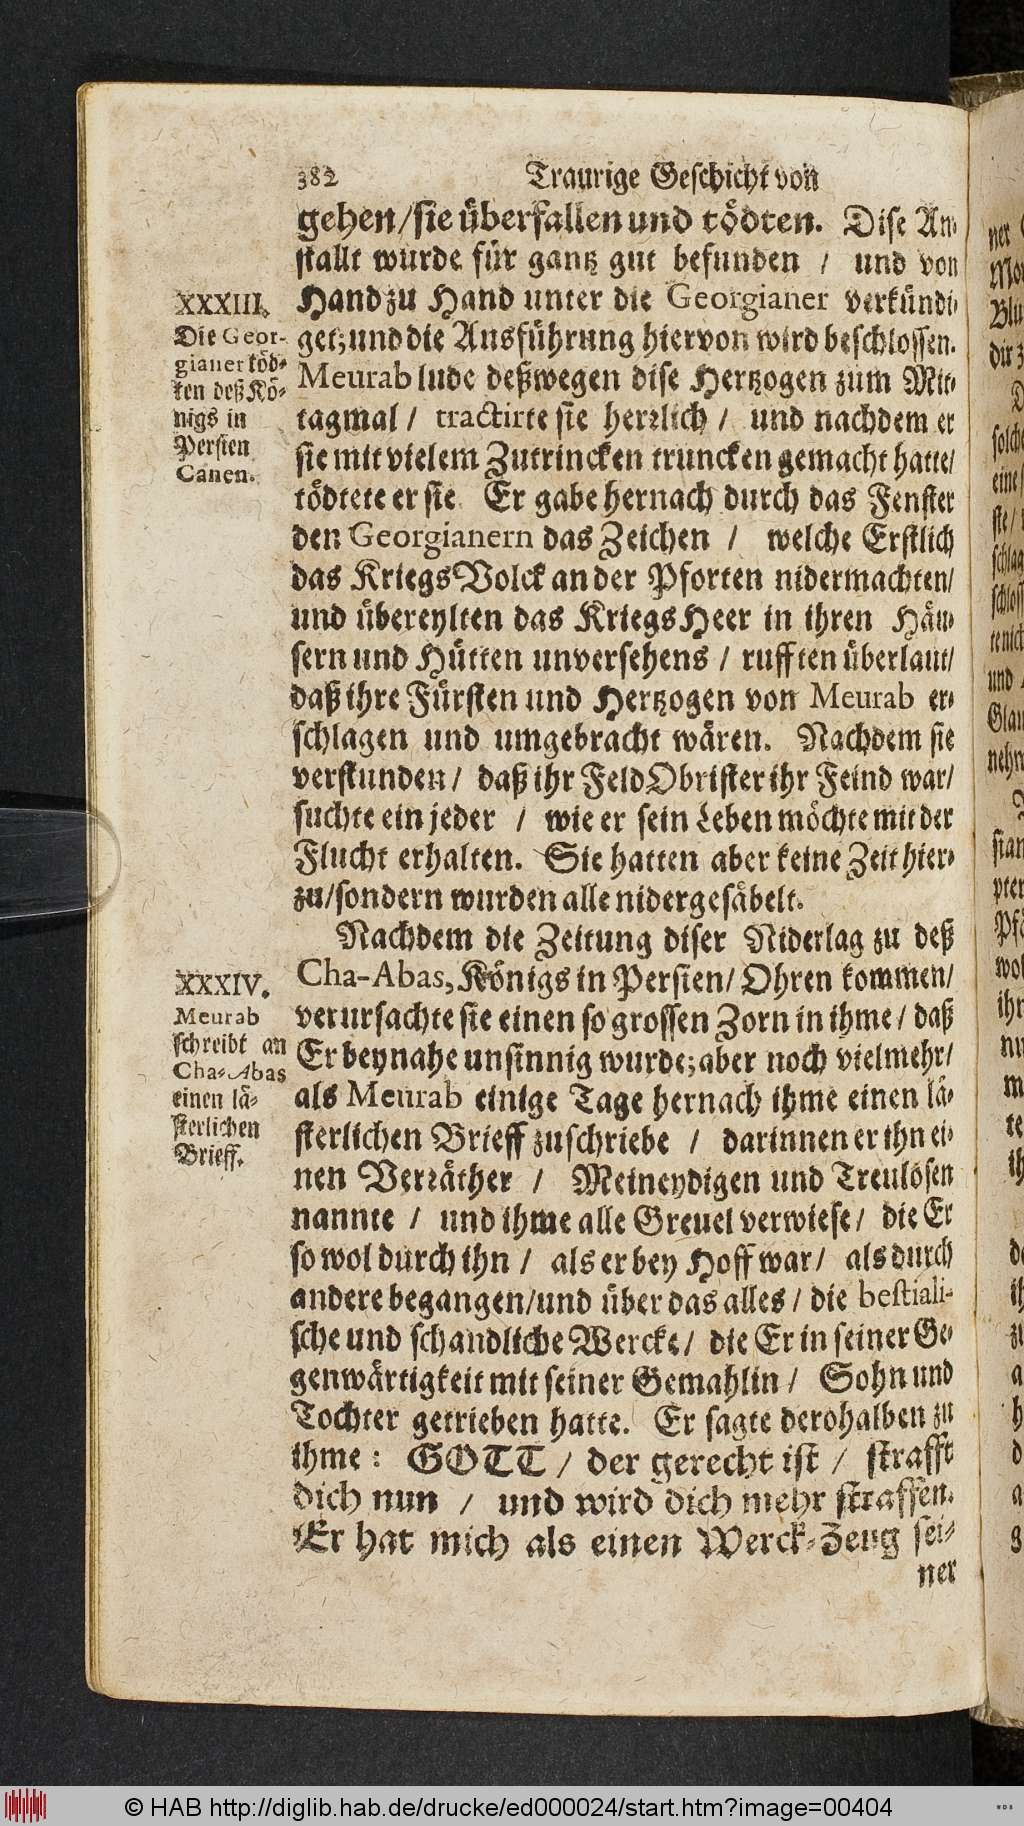 382 Traurige Geschicht von
gehen/sie überfallen und tödten. Dise An-
stallt wurde für gantz gut befunden / und von
Hand zu Hand unter die Georgianer verkündi-
get; und die Ausführung hiervon wird beschlossen.
Meurab lude deßwegen dise Hertzogen zum Mit-
tagmal / tractirte sie herrlich / und nachdem er
sie mit vielem Zutrincken truncken gemacht hatte/
tödtete er sie. Er gabe hernach durch das Fenster
den Georgianern das Zeichen / welche Erstlich
das KriegsVolck an der Pforten nidermachten/
und übereylten das KriegsHeer in ihren Häu-
sern und Hütten unversehens / rufften überlaut/
daß ihre Fürsten und Hertzogen von Meurab er-
schlagen und umgebracht wären. Nachdem sie
verstunden / daß ihr FeldObrister ihr Feind war/
suchte ein jeder / wie er sein Leben möchte mit der
Flucht erhalten. Sie hatten aber keine Zeit hier-
zu/sondern wurden alle nidergesäbelt.
XXXIII.
Die Geor-
gianer töd-
ten deß Kö-
nigs in
Persien
Canen.
Nachdem die Zeitung diser Niderlag zu deß
Cha-Abas, Königs in Persien/ Ohren kommen/
verursachte sie einen so grossen Zorn in ihme / daß
Er beynahe unsinnig wurde; aber noch vielmehr/
als Meurab einige Tage hernach ihme einen lä-
sterlichen Brieff zuschriebe / darinnen er ihn ei-
nen Verräther / Meineydigen und Treulosen
nannte / und ihme alle Greuel verwiese / die Er
so wol durch ihn / als er bey Hoff war / als durch
andere begangen/und über das alles / die bestiali-
sche und schandliche Wercke / die Er in seiner Ge-
genwärtigkeit mit seiner Gemahlin / Sohn und
Tochter getrieben hatte. Er sagte derohalben zu
ihme: GOTT / der gerecht ist / strafft
dich nun / und wird dich mehr straffen.
Er hat mich als einen Werck-Zeug sei-
ner
XXXIV.
Meurab
schreibt an
Cha-Abas
einen lä-
sterlichen
Brieff.
© HAB http://diglib.hab.de/drucke/ed000024/start.htm?image=00404